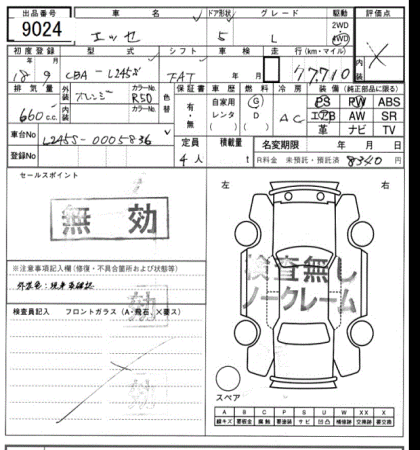 出品番号 車名 ドア形状 グレード 駆動 評価点
9024 エッセ 5 L 2WD 4WD X
初度登録 型式 シフト 車検 走行(km・マイル) 内装
18年 9月 CBA-L245S FAT 年 月 77,710
排気量 外装 オレンジ カラーNo. R50 色替 保証書 車歴 燃料 冷房 装備(純正部品に限る)
660 c.c. 内装 カラーNo. 有・無 自家用 レンタ G D AC PS PW ABS
エアB AW SR
革 ナビ TV
車台No L245S-0005836 定員 積載量 名変期限 年 月 日
登録No 4人 t R料金 未預託・預託済 8340 円
セールスポイント
無効
左 右
※注意事項記入欄(修復・不具合箇所および状態等)
外装色:現車要確認
検査無し
ノークレーム
無効
検査員記入 フロントガラス(A・飛石、X要ス)
無効
スペア
A B C P S U W X XX